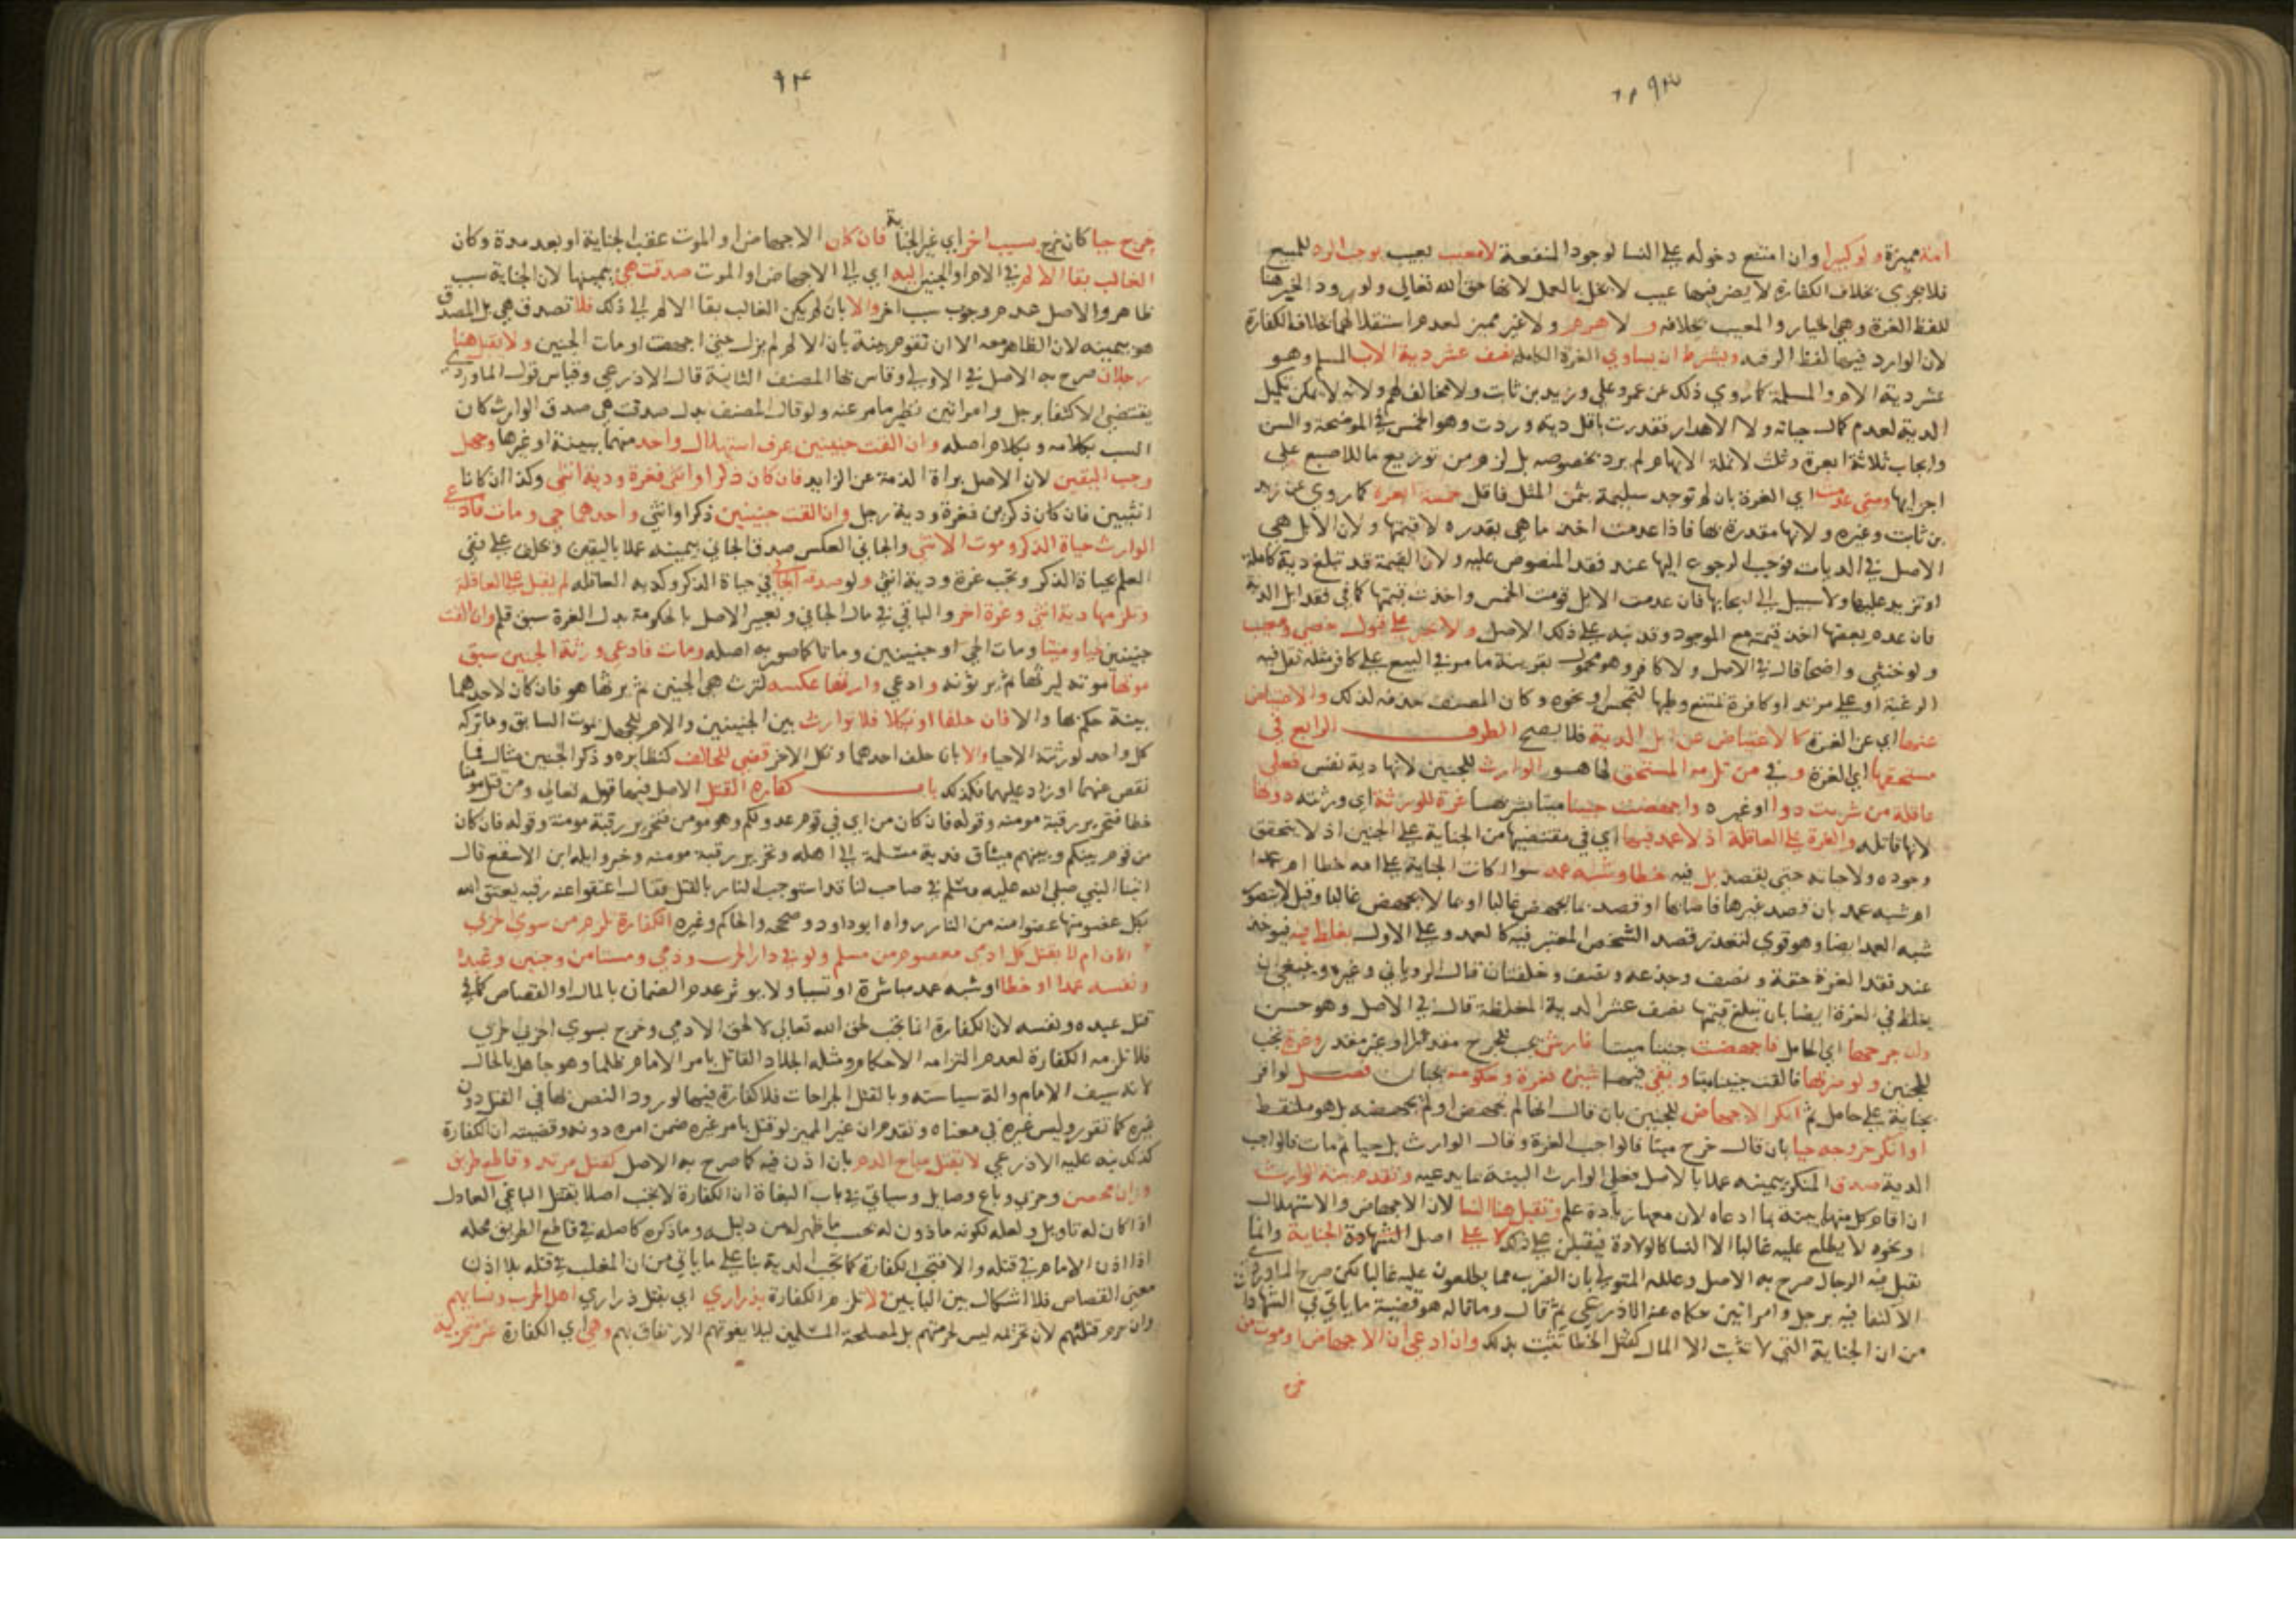 ٩٣
امة مميزة ولو كبيرا وان امتنع دخوله على النسا لوجود المنفعة لا معيب بعيب يوجب الرد للمبيع
فلا يجزي بخلاف الكفارة لا يضر فيها عيب لا يخل بالعمل لانها حق الله تعالى ولورود الخبر هنا
للفظ الغرة وهي الخيار والمعيب بخلافه و لا هرم ولا غير مميز لعدم استقلالهما بخلاف الكفارة
لان الوارد فيها لفظ الرقبه ويشترط ان يساوي الغرة الكامله نصف عشر دية الاب المسلم وهو
عشر دية الام المسلمة كما روي ذلك عن عمر وعلي وزيد بن ثابت ولا مخالف لهم ولانه لا يمكن تكميل
الدية لعدم كمال حياته ولا الاهدار فقدرت باقل دية وردت وهو الخمس في الموضحة والسن
وايجاب ثلاثة ابعرة وثلث لانملة الابهام لم يرد بخصوصه بل لزم من توزيع ما للاصبع على
اجزايها ومتى عدمت اي الغرة بان لم توجد سليمة بثمن المثل فاقل خمسة ابعرة كما روي عن زيد
بن ثابت وغيره ولانها مقدرة بها فاذا عدمت اخذ ما هي بقدره لا قيمتها ولان الابل هي
الاصل في الديات فوجب الرجوع اليها عند فقد المنصوص عليه ولان القيمة قد تبلغ دية كاملة
او تزيد عليها ولا سبيل الى ايجابها فان عدمت الابل قومت الخمس واخذت قيمتها كما في فقد ابل الدية
فان عدم بعضها اخذ قيمته مع الموجود وقد نبه على ذلك الاصل ولا يجبر على قبول خصي ومجبوب
ولو خنثى واضحا قال في الاصل ولا كافر وهو محمول بقرينة ما مر في البيع على كافر مثله تقل فيه
الرغبة او على مرتد او كافرة يمتنع وطيها لتمجس او نحوه وكان المصنف حذفه لذلك والاعتياض
عنها اي عن الغرة كالاعتياض عن ابل الدية فلا يصح الطرف الرابع في
مستحقها اي الغرة وفي من تلزمه المستحق لها هو الوارث للجنين لانها دية نفس فعلى
عاقلة من شربت دوا او غيره واجهضت جنينا ميتا بشربها غرة للورثة اي ورثته دونها
لانها قاتله والغرة على العاقلة اذ لا عمد فيها اي في مقتضيها من الجناية على الجنين اذ لا يتحقق
وجوده ولا حياته حتى يقصد بل فيه خطا وشبه عمد سوا كانت الجناية على امه خطا ام عمدا
ام شبه عمد بان قصد غيرها فاصابها او قصد بما يجهض غالبا او بما لا يجهض غالبا وقيل لا يتصور
شبه العمد ايضا وهو قوي لتعذر قصد الشخص المعتبر فيه كالعمد وعلى الاول تغلظ فيه فيوخذ
عند فقد الغرة حقة ونصف وجذعه ونصف وخلفتان قال الروياني وغيره وينبغي ان
يغلظ في الغرة ايضا بان تبلغ قيمتها نصف عشر الدية المغلظة قال في الاصل وهو حسن
وان جرحها اي الحامل فاجهضت جنينا ميتا فارش يجب للجرح مقدر او غير مقدر وغرة تجب
للجنين ولو ضربها فالقت جنينا ميتا وبقي فيها شين فغرة وحكومة تجبان فصل لو اقر
بجناية على حامل ثم انكر الاجهاض للجنين بان قال انها لم تجهض او لم تجهضه بل هو ملتقط
او انكر خروجه حيا بان قال خرج ميتا فالواجب الغرة وقال الوارث بل حيا ثم مات فالواجب
الدية صدق المنكر بيمينه عملا بالاصل فعلى الوارث البينة بما يدعيه وتقدم بينة الوارث
ان اقام كل منهما بينة بما ادعاه لان معها زيادة علم وتقبل هنا النسا لان الاجهاض والاستهلال
او نحوه لا يطلع عليه غالبا الا النسا كالولادة فيقبلن على ذلك لا على اصل الشهادة الجناية وانما
تقبل فيه الرجال صرح به الاصل وعلله المتولي بان الضرب مما يطلعون عليه غالبا لكن صرح الماوردي بان
الاكتفا فيه برجل وامراتين حكاه عنه الاذرعي ثم قال وما قاله هو قضية ما ياتي في الشهادا
من ان الجناية التي لا تثبت الا المال كقتل الخطا تثبت بذلك وان ادعى ان الاجهاض او موت من
خرج
٩٤
خرج حيا كان بسبب اخر اي غير الجناية فان كان الاجهاض او الموت عقب الجناية او بعد مدة وكان
الغالب بقا الالم في الام او الجنين اليه اي الى الاجهاض او الموت صدقت هي بيمينها لان الجناية سبب
ظاهر والاصل عدم وجوب سبب اخر والا بان لم يكن الغالب بقا الالم الى ذلك فلا تصدق هي بل المصدق
هو بيمينه لان الظاهر معه الا ان تقوم بينة بان الالم لم يزل حتى اجهضت او مات الجنين ولا يقبل هنا
رجلان صرح به الاصل في الاولى وقاس بها المصنف الثانية قال الاذرعي وقياس قول الماوردي
يقتضي الاكتفا برجل وامراتين نظير ما مر عنه ولو قال المصنف بدل صدقت هي صدق الوارث كان
انسب بكلامه وبكلام اصله وان القت جنينين عرف استهلال واحد منهما ببينة او غيرها وجهل
وجب اليقين لان الاصل براة الذمة عن الزايد فان كان ذكرا وانثى فغرة ودية انثى وكذا ان كانا
انثيين فان كان ذكرين فغرة ودية رجل وان القت جنينين ذكرا وانثى واحدهما حي ومات فادعى
الوارث حياة الذكر وموت الانثى والجاني العكس صدق الجاني بيمينه عملا باليقين وحلف على نفي
العلم بحياة الذكر وتجب غرة ودية انثى ولو صدقه الجاني في حياة الذكر وكذبه العاقله لم يقبل على العاقلة
وتلزمها دية انثى وغرة اخر والباقي في مال الجاني وتعبير الاصل بالحكومة بدل الغرة سبق قلم وان القت
جنينين حيا وميتا ومات الحي او جنينين وماتا كما صور به اصله وماتت فادعى ورثة الجنين سبق
موتها موته ليرثها ثم يرثونه وادعى وارثها عكسه لترث هي الجنين ثم يرثها هو فان كان لاحدهما
بينة حكم بها والا فان حلفا او نكلا فلا توارث بين الجنينين والام للجهل بموت السابق وما تركه
كل واحد لورثته الاحيا والا بان حلف احدهما ونكل الاخر قضي للحالف كنظايره وذكر الجنين مثال فما
نقص عنهما او زاد عليهما فكذلك باب كفارة القتل الاصل فيها قوله تعالى ومن قتل مومنا
خطا فتحرير رقبة مومنه وقوله فان كان من اي في قوم عدو لكم وهو مومن فتحرير رقبة مومنة وقوله فان كان
من قوم بينكم وبينهم ميثاق فدية مسلمة الى اهله وتحرير رقبة مومنه وخبر واثله ابن الاسقع قال
اتينا النبي صلى الله عليه وسلم في صاحب لنا قد استوجب النار بالقتل فقال اعتقوا عنه رقبه يعتق الله
بكل عضو منها عضوا منه من النار رواه ابو داود وصححه والحاكم وغيره الكفارة تلزم من سوى الحربي
بقتل كل ادمي معصوم من مسلم ولو في دار الحرب وذمي ومستامن وجنين وعبده
ونفسه عمدا او خطا او شبه عمد مباشرة او تسببا ولا يوثر عدم الضمان بالمال او القصاص كما في
قتل عبده ونفسه لان الكفارة انما تجب لحق الله تعالى لا لحق الادمي وخرج بسوى الحربي الحربي
فلا تلزمه الكفارة لعدم التزامه الاحكام ومثله الجلاد القاتل بامر الامام ظلما وهو جاهل بالحال
لانه سيف الامام والة سياسته وبالقتل الجراحات فلا كفارة فيها لورود النص بها في القتل دون
غيره كما تقرر وليس غيره في معناه وتقدم ان غير المميز لو قتل بامر غيره ضمن امره دونه وقضيته ان الكفارة
كذلك نبه عليه الاذرعي لا بقتل مباح الدم بان اذن فيه كما صرح به الاصل كقتل مرتد وقاطع طريق
وزان محصن وحربي وباغ وصايل وسياتي في باب البغاة ان الكفارة لا تجب اصلا بقتل الباغي العادل
اذا كان له تاويل ولعله لكونه ماذون له بحسب ما ظهر له من دليله وما ذكره كاصله في قاطع الطريق محله
اذا اذن الامام في قتله والا فتجب الكفارة كما تجب الدية بنا على ما ياتي من ان المغلب في قتله بلا اذن
معنى القصاص فلا اشكال بين البابين ولا تلزم الكفارة بذراري اي بقتل ذراري اهل الحرب ونسايهم
وان حرم قتلهم لان تحريمه ليس لحرمتهم بل لمصلحة المسلمين ليلا يفوتهم الارتفاق بهم وهي اي الكفارة عتق